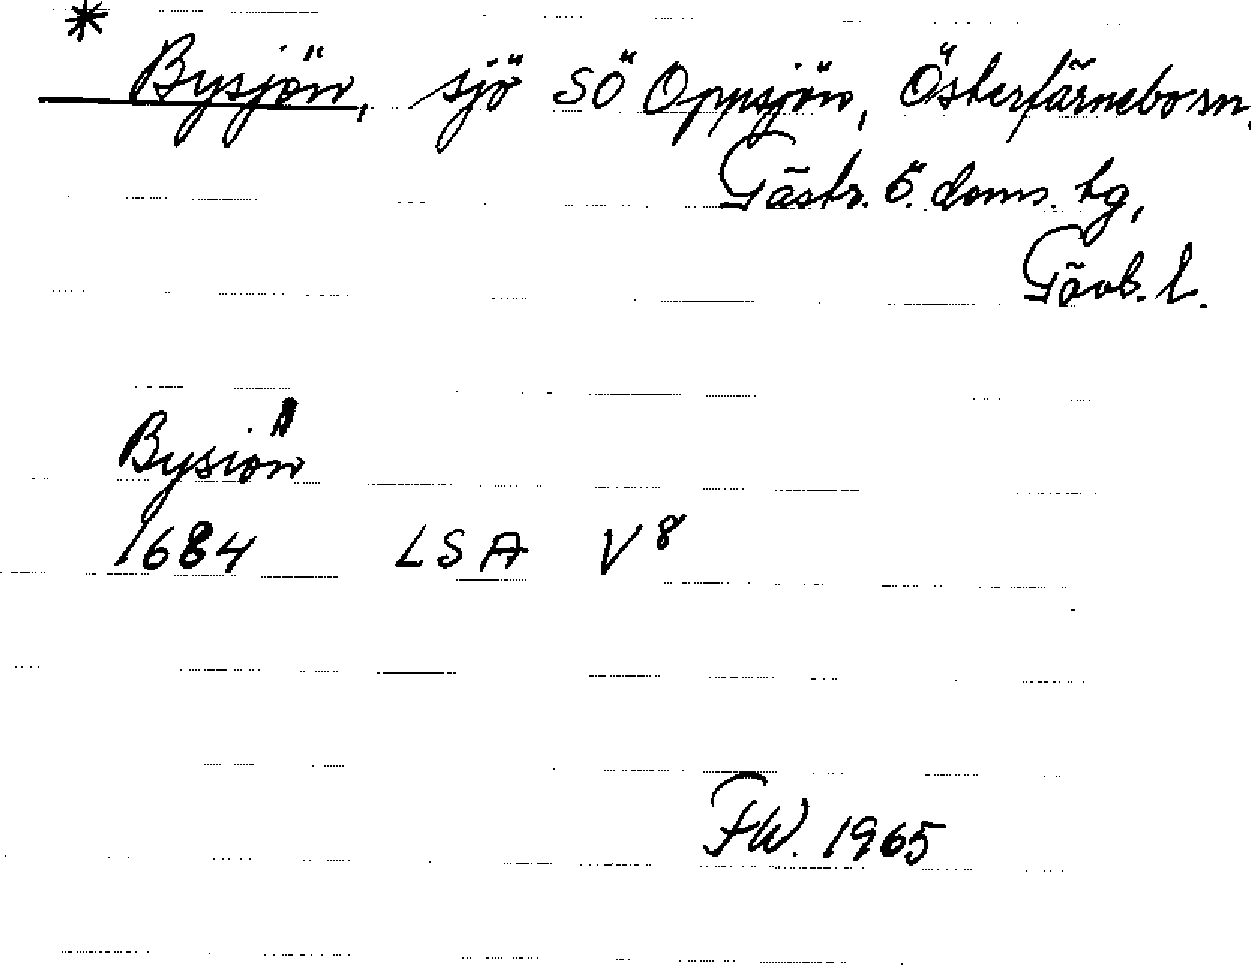 *
Bysjön, sjö SÖ Oppsjön, Österfärnebo sn,
Gästr. ö. doms. tg,
Gävb. l.
Bysiön
1684 LSA V 8
FW. 1965